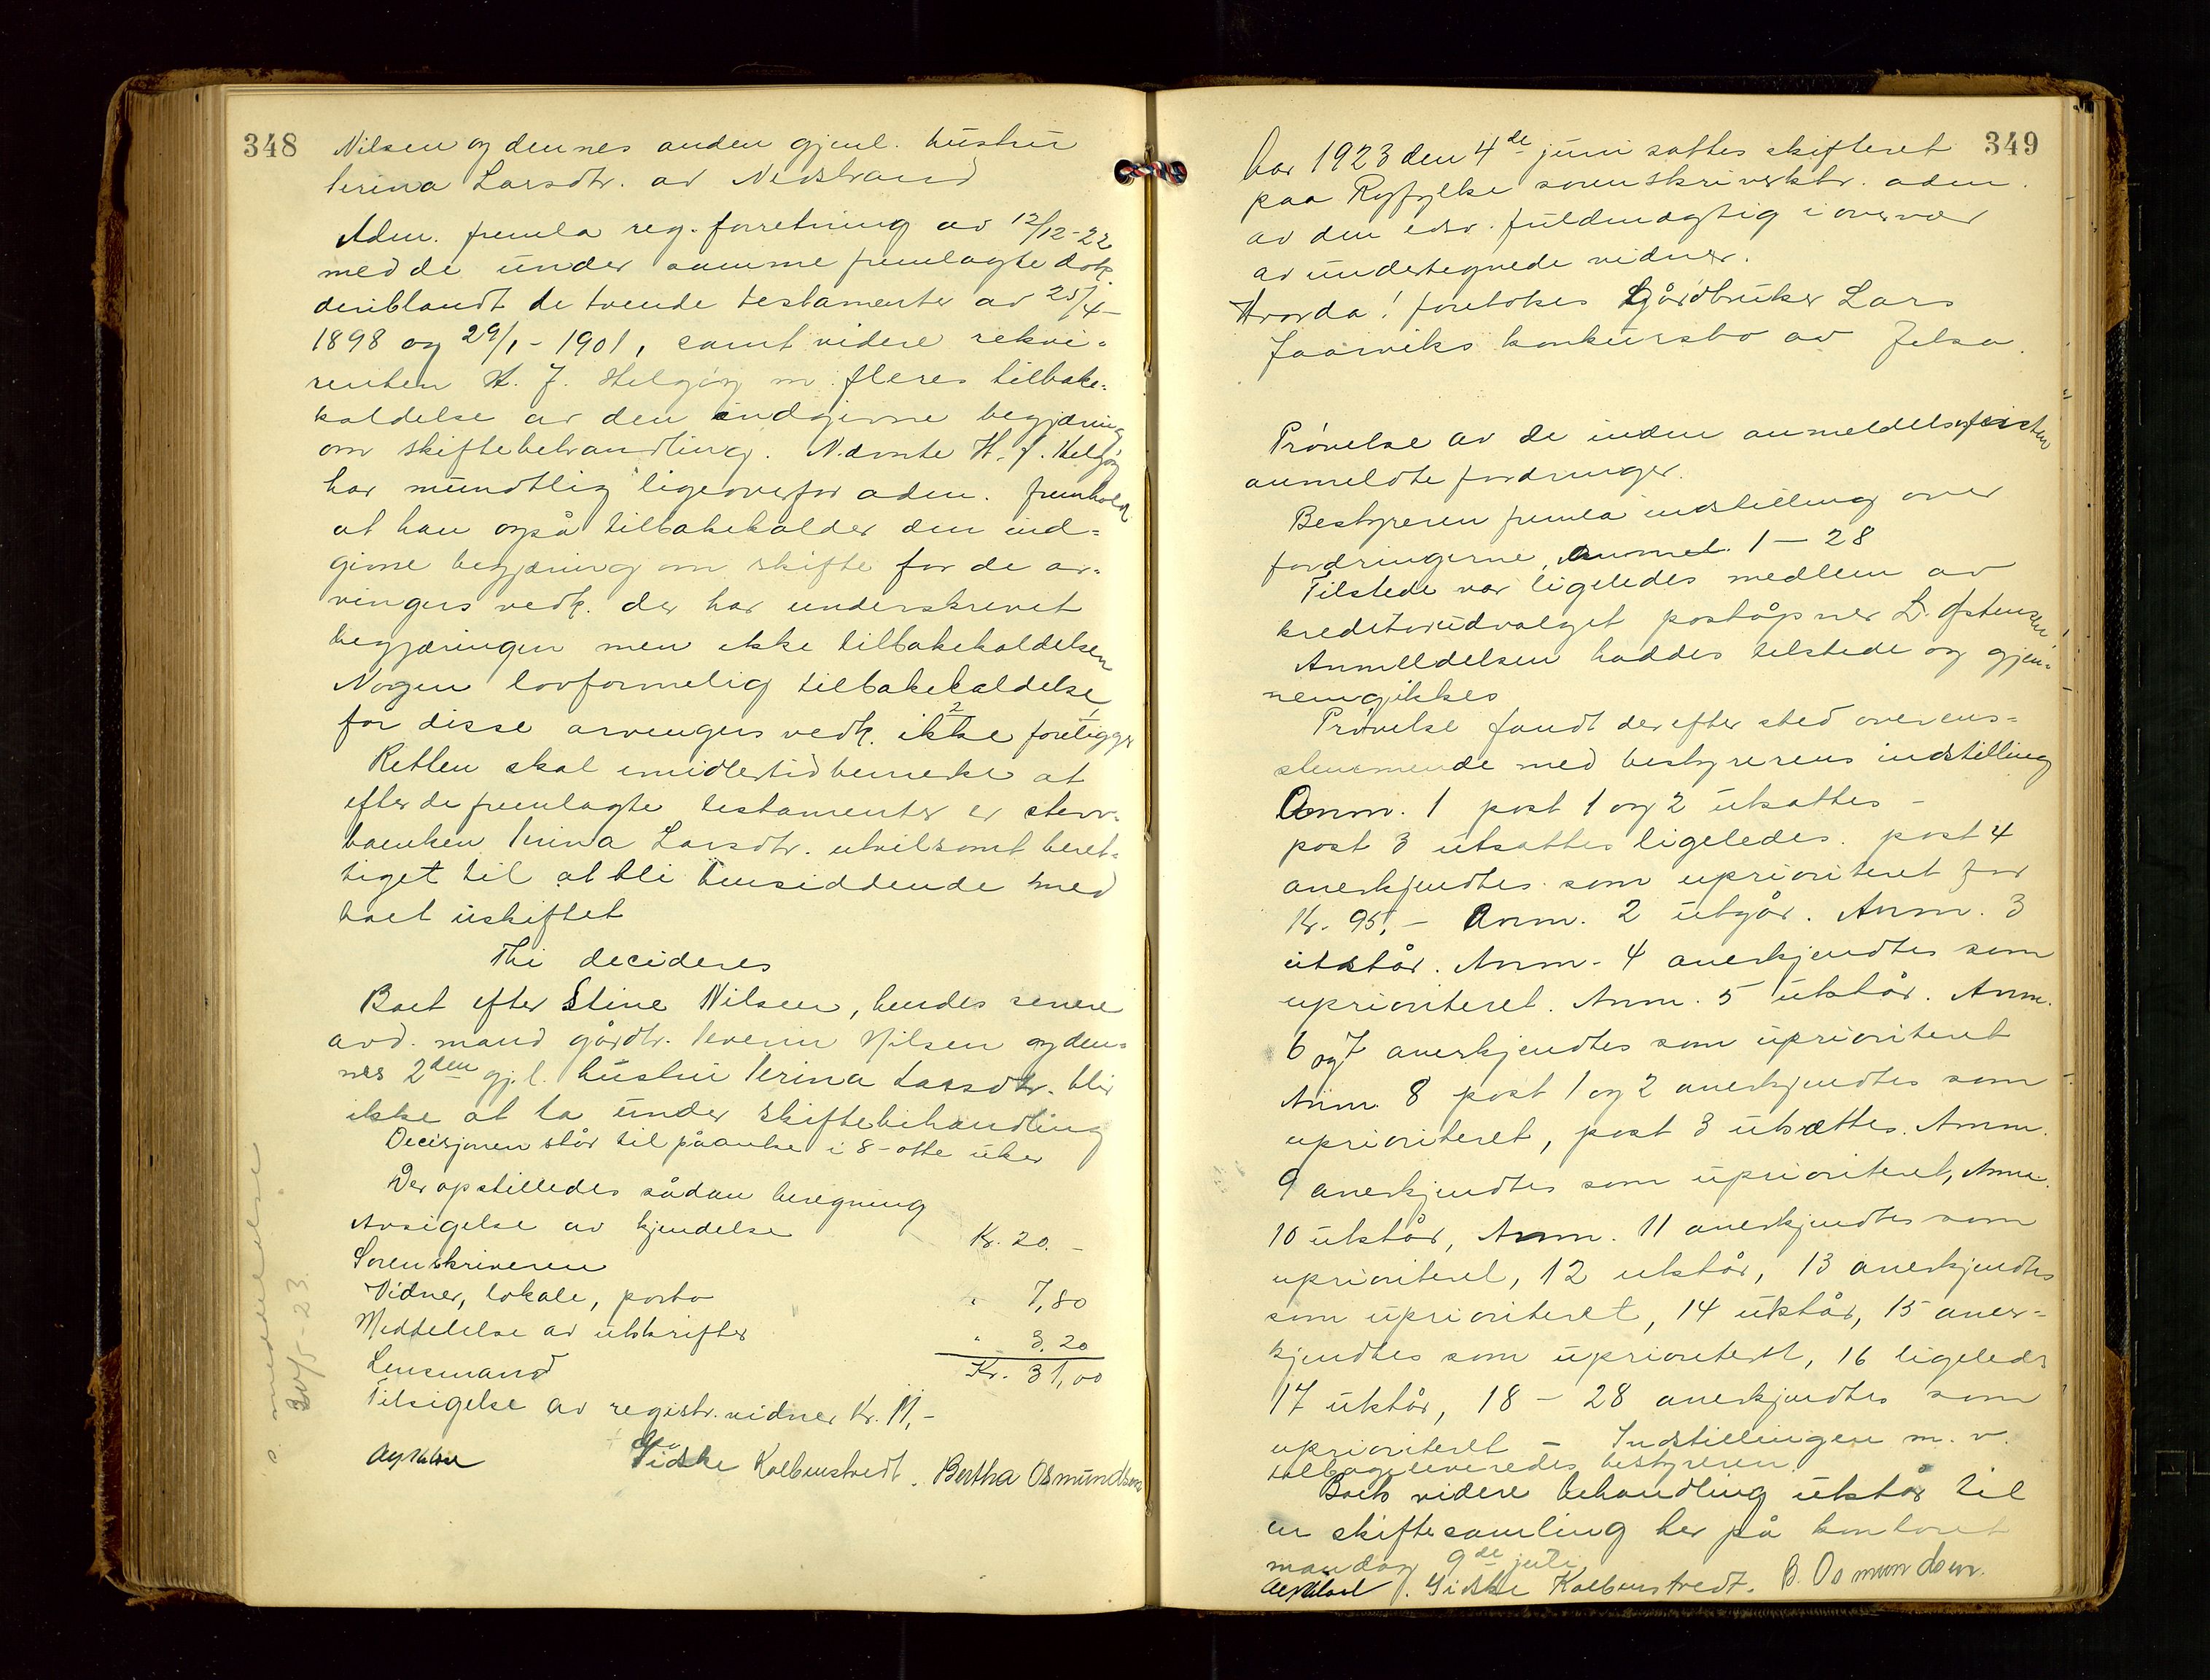 348
Nilsen og dennes anden gjenl. hustru
Serina Larsdtr. av Nedstrand
Adm. fremla reg. forretning av 12/12-22
med de under samme fremlagte dok.
deriblandt de tvende testamenter av 25/4-
1898 og 29/1-1901, samt videre rekvi-
renten H. J. Helgøy m. fleres tilbake-
kaldelse av den indgivne begjæring
om skiftebehandling. Nævnte H. J. Helgøy
har mundtlig ligeoverfor adm. fremholdt
at han også tilbakekalder den ind-
givne begjæring om skifte for de ar-
vingers vedk. der har underskrevet
begjæringen men ikke tilbakekaldelsen
Nogen lovformelig tilbakekaldelse
for disse arvingers vedk. ikke foreligger
Retten skal imidlertid bemerke at
efter de fremlagte testamenter er sterv-
boenken Serina Larsdtr. utvilsomt beret-
tiget til at bli hensiddende med
boet uskiftet
Thi decideres
Boet efter Stine Nilsen, hendes senere
avd. mand gårdbr. Severin Nilsen og den-
nes 2den gjl. hustru Serina Larsdtr. blir
ikke at ta under skiftebehandling
Decisjonen står til påanke i 8-otte uker
Der opstilledes sådan beregning
Avsigelse av kjendelse Kr. 20.-
Sorenskriveren
Vidner, lokale, porto " 7,80
Meddelelse av utskrifter " 3.20
Lensmand Kr. 31,00
Tilsigelse av registr. vidner Kr. 11,-
Gidske Kolbenstvedt. Bertha Osmundsen
s. meddelelse
30/5-23.
349
Aar 1923 den 4de juni sattes skifteret
paa Ryfylke sorenskriverktr. adm.
av den edsv. fuldmægtig i overvær
av undertegnede vidner.
Hvorda! foretokes Gårdbruker Lars
Jaarviks konkursbo av Jelsa.
Prøvelse av de inden anmeldelsesfristen
anmeldte fordringer.
Bestyreren fremla indstilling over
fordringerne, Anmel. 1-28
Tilstede var ligeledes medlem av
kreditorudvalget poståpner L. Østensen
Anmeldelsen haddes tilstede og gjen-
nemgikkes
Prøvelse fandt derefter sted overens-
stemmende med bestyrerens indstilling
Anm. 1 post 1 og 2 utsattes -
post 3 utsattes ligeledes. post 4
anerkjendtes som uprioriteret for
Kr. 95,- Anm. 2 utgår. Anm. 3
utstår. Anm. 4 anerkjendtes som
uprioriteret. Anm. 5 utstår. Anm.
6 og 7 anerkjendtes som uprioriteret
Anm. 8 post 1 og 2 anerkjendtes som
uprioriteret, post 3 utsættes. Anm.
9 anerkjendtes som uprioriteret, Anm.
10 utstår, Anm. 11 anerkjendtes som
uprioriteret, 12 utstår, 13 anerkjendtes
som uprioriteret, 14 utstår, 15 aner-
kjendtes som uprioriteret, 16 ligeleds
17 utstår, 18 - 28 anerkjendtes som
uprioriteret - Indstillingen m. v.
tilbageleveredes bestyreren.
Boets videre behandling utstår til
en skiftesamling her på kontoret
mandag 9de juli
Gidske Kolbenstvedt. B. Osmundsen.